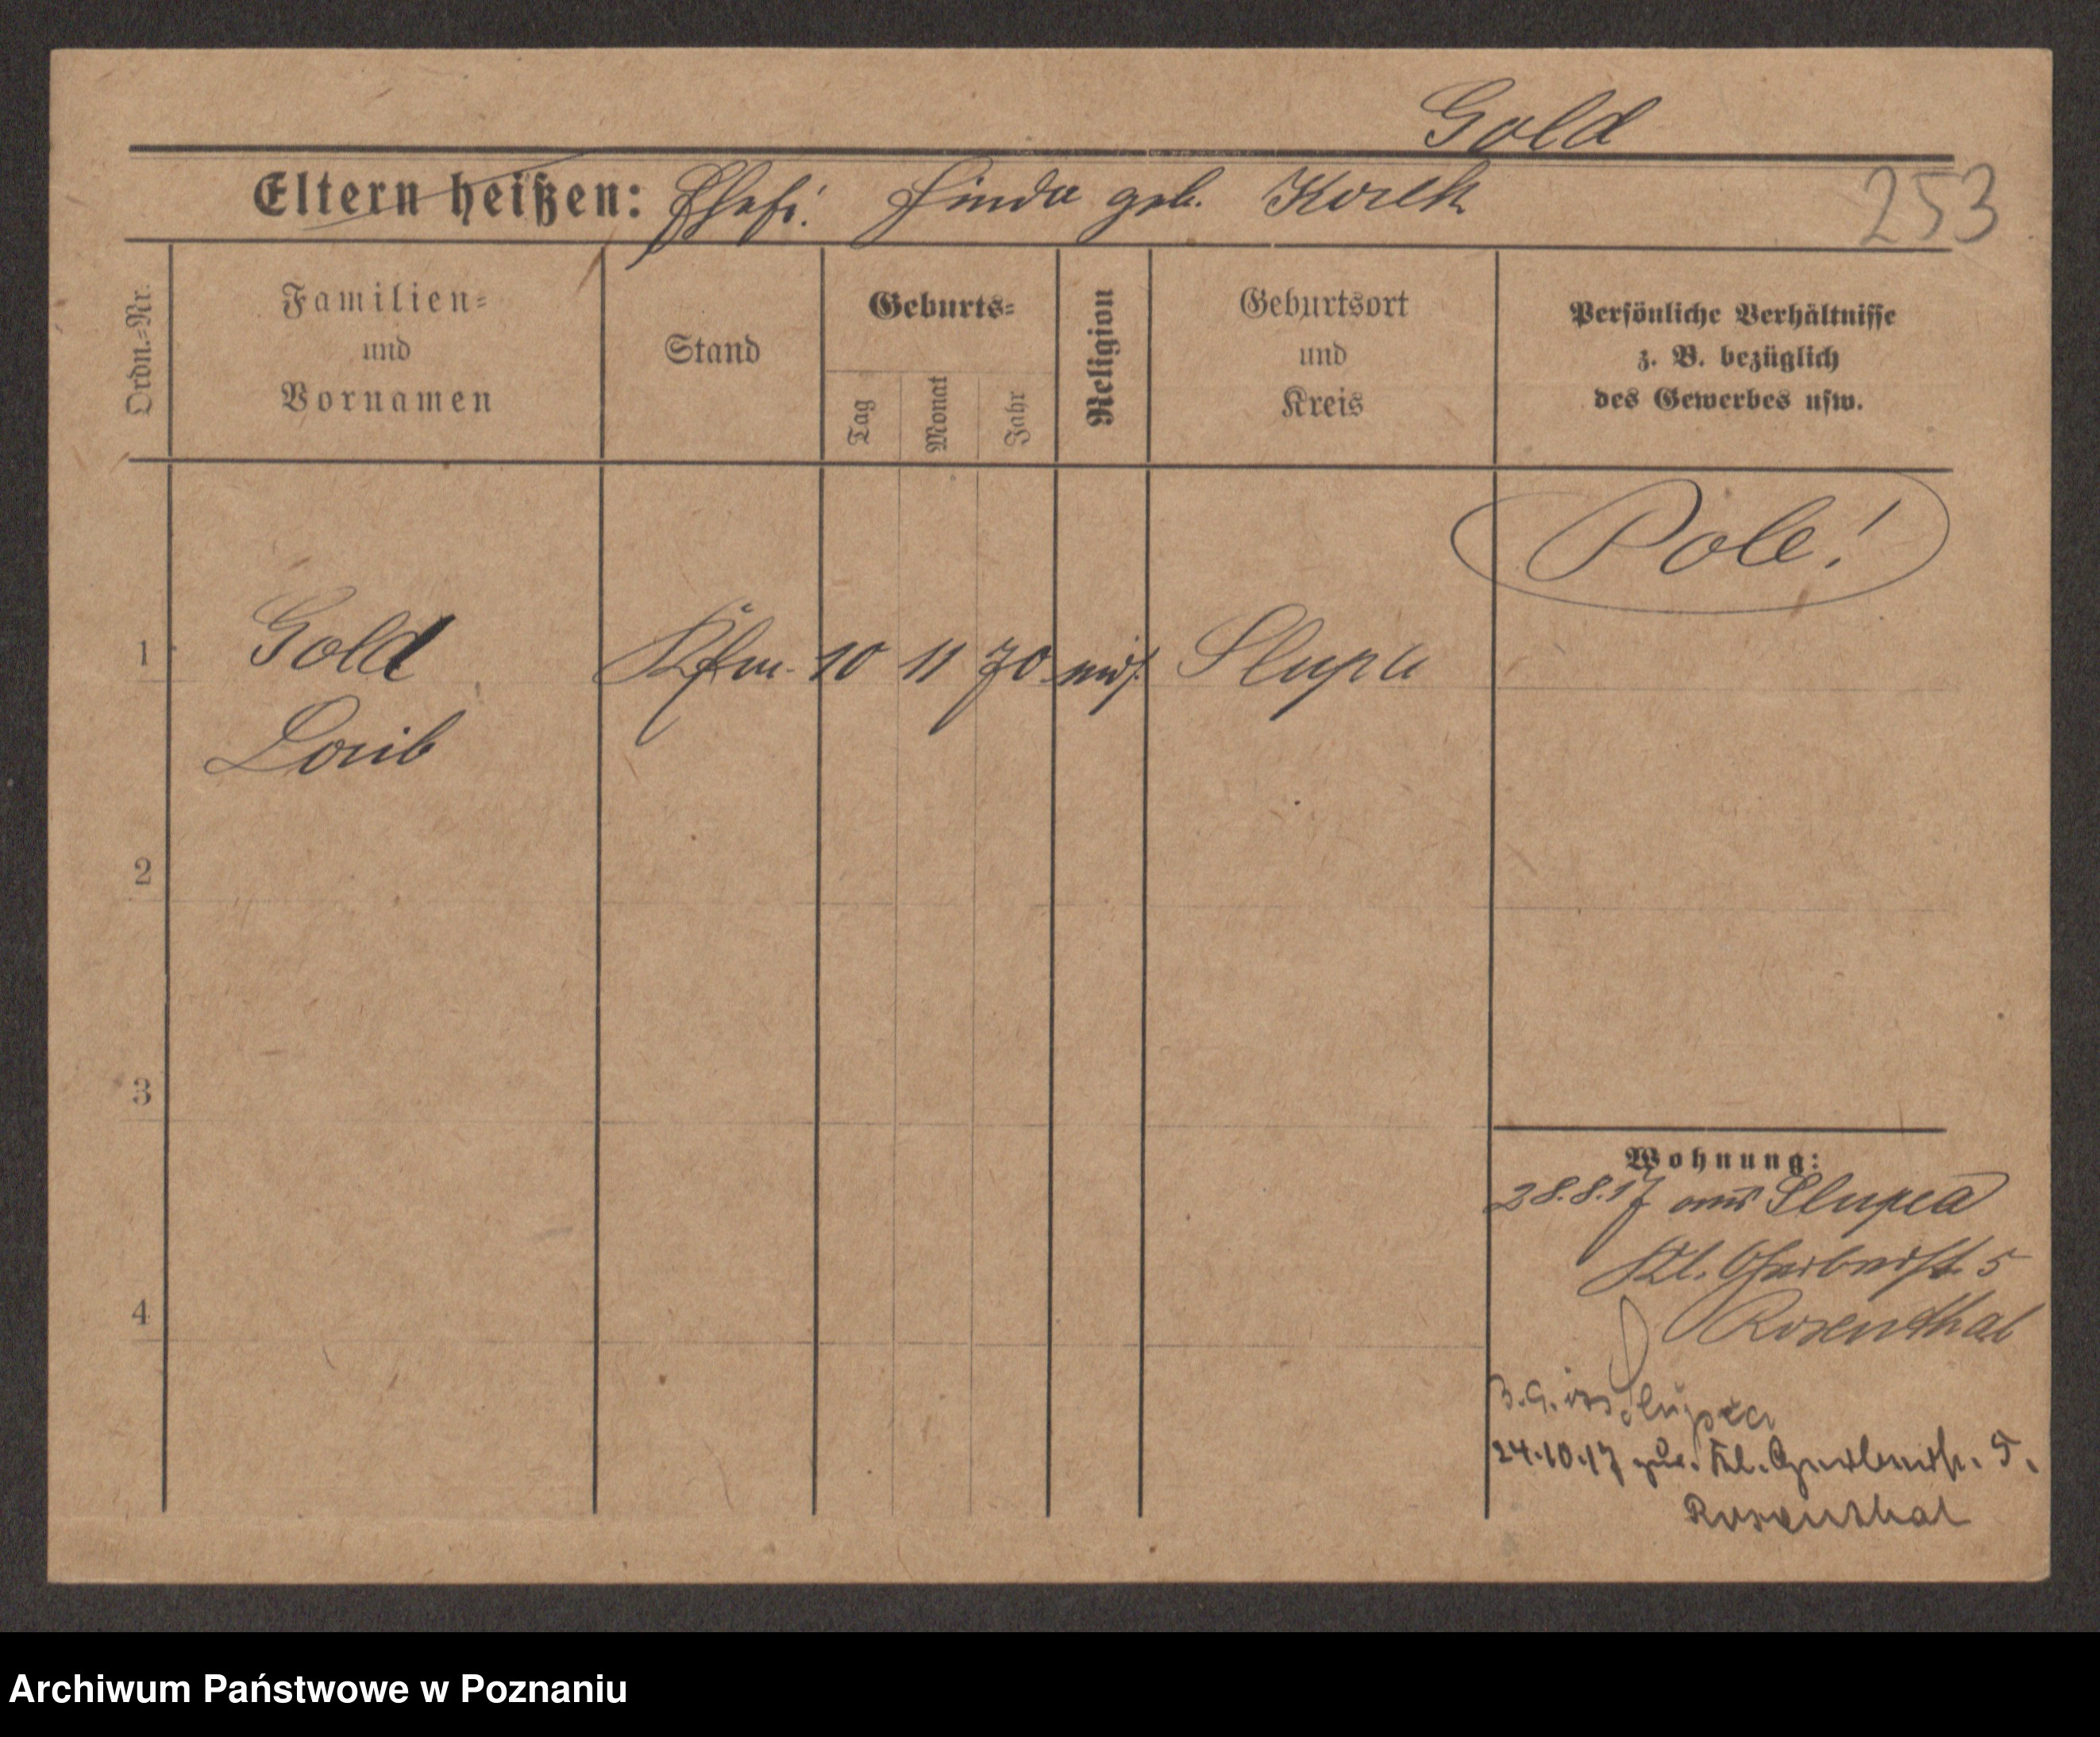 Gold
Eltern heißen: Ehefr. Hinda geb. Korek
253
Ordn.=Nr.
Familien=
und
Vornamen
Stand
Geburts=
Tag
Monat
Jahr
Religion
Geburtsort
und
Kreis
Persönliche Verhältnisse
z. B. bezüglich
des Gewerbes usw.
Pole!
1 Gold Kfm. 10 11 70 mos. Slupca
Leib
2
3
4
Wohnung:
28.8.17 aus Slupca
Kl. Gerberstr. 5
Rosenthal
3.9. in Slupca
24.10.17 zur. Kl. Gerberstr. 5.
Rosenthal
Archiwum Państwowe w Poznaniu